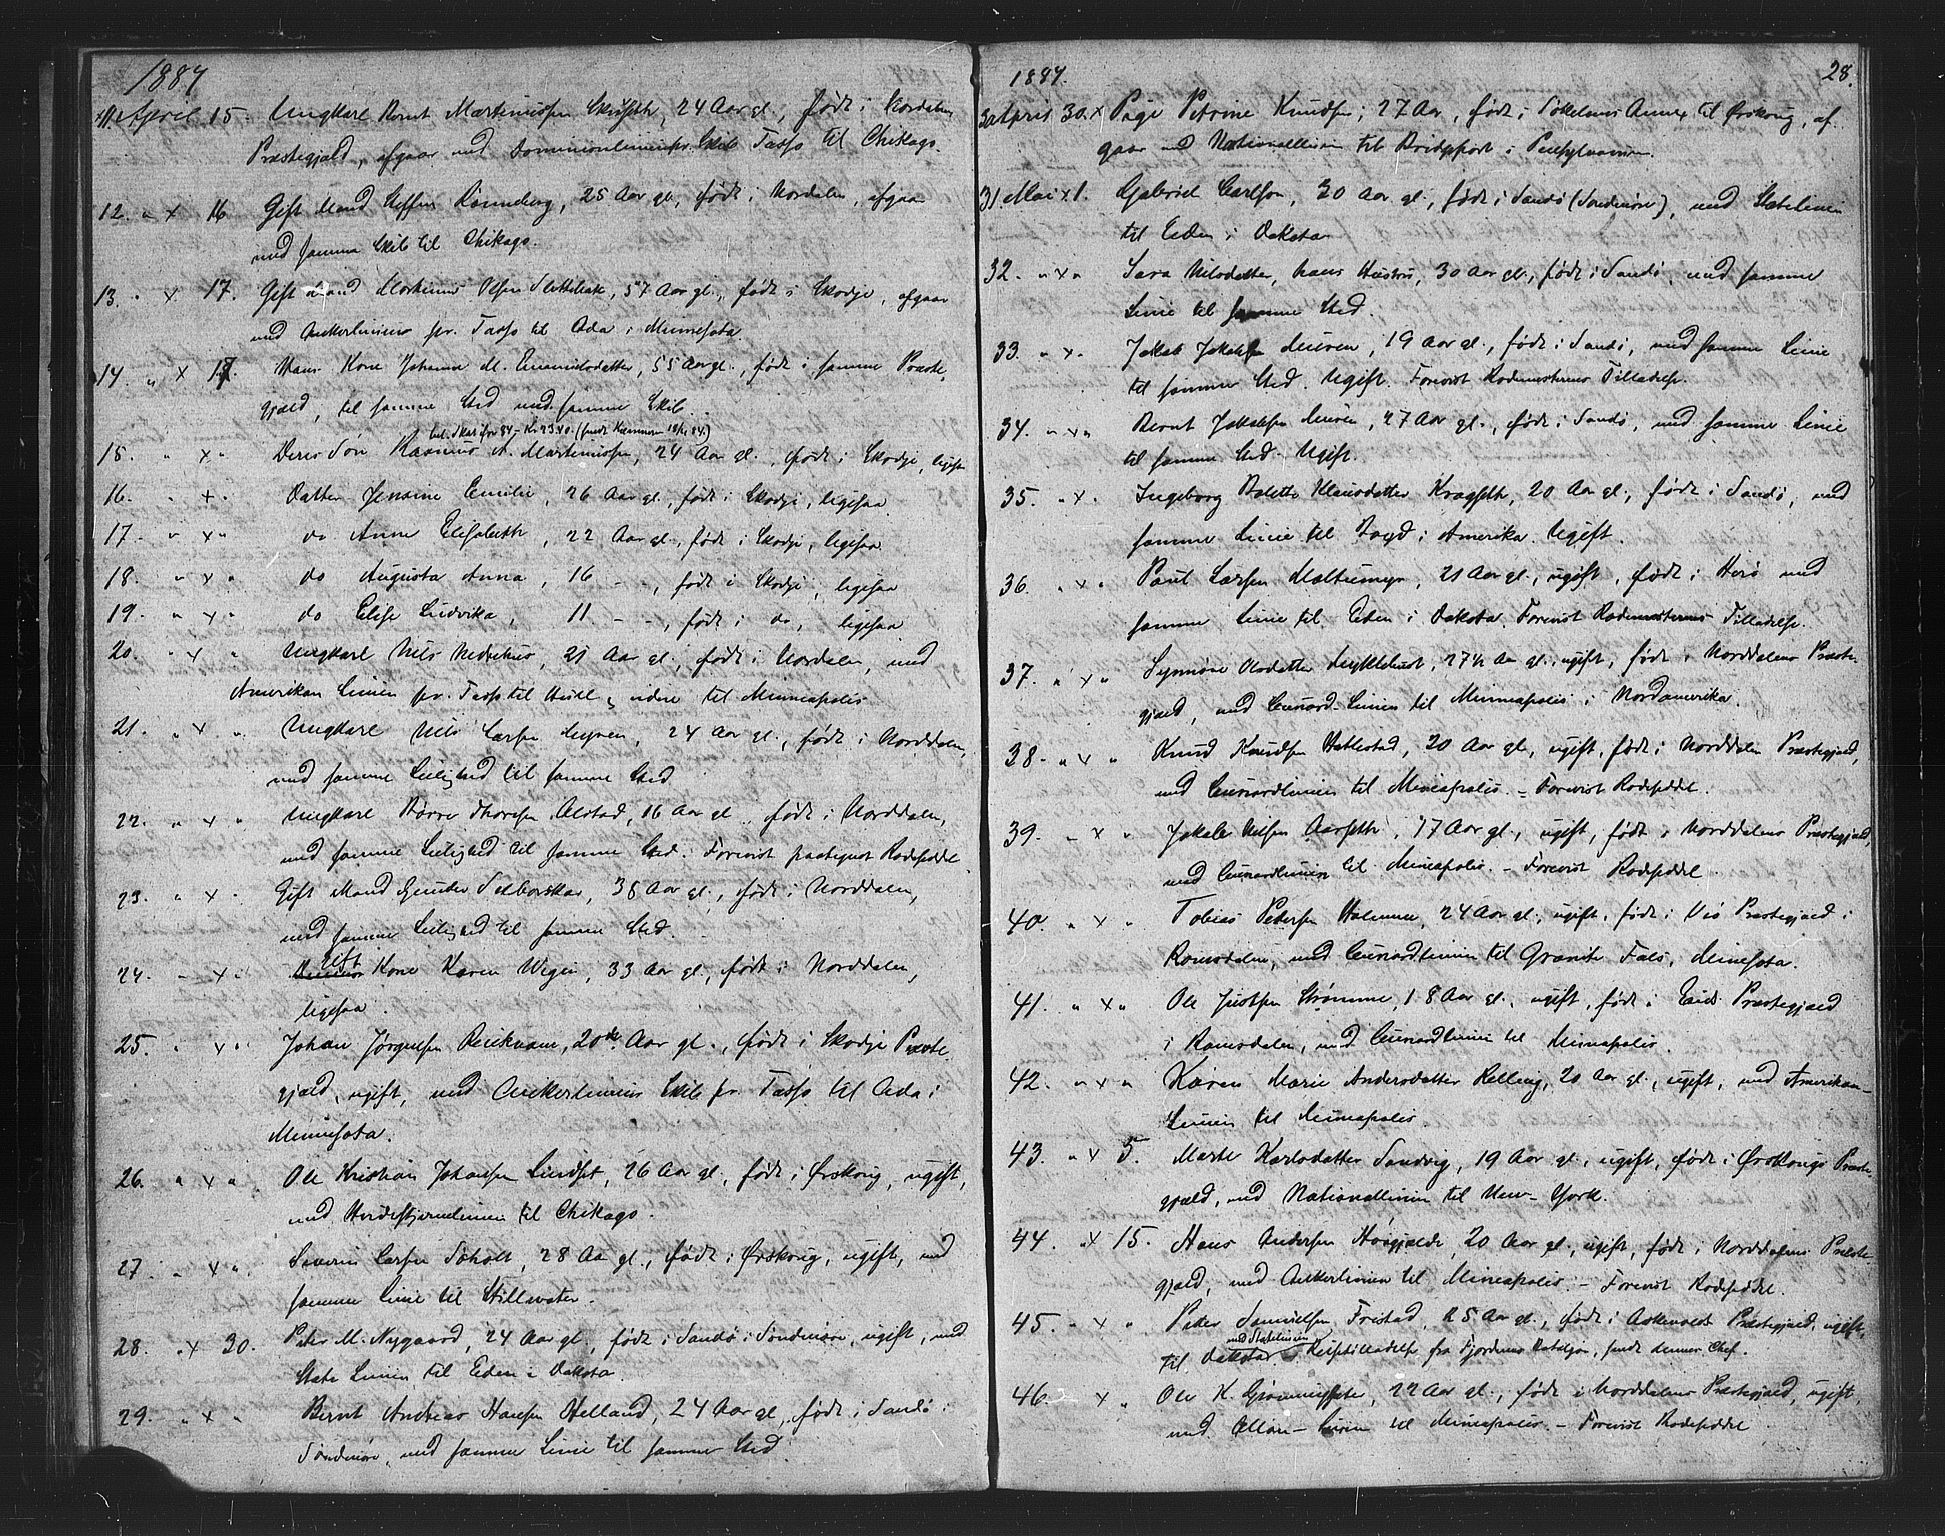 1884
11. April 15. Ungkarl Bernt Martinussen, 24 Aar gl., født i Nordalen
Præstegjæld, afgaar med Dominionliniens pr. Skib Tasso til Chikago.
12. " x 16. Gift Mand Steffen Rønneberg, 25 Aar gl., født i Nordalen, afgaar
med samme Skib til Chikago.
13. " x 17. Gift Mand Martinus Olsen, 57 Aar gl., født i Skodje, afgaar
med Ankerliniens pr. Tasso til Ada i Minnesota.
14. " x 17. Hans Kone Johanne M. Emanuelsdatter, 55 Aar gl., født i samme Præste,
gjæld, til samme Sted med samme Skib.
bet. Skat for 84
15. " x " Deres Søn Rasmus A. Martinussen, 24 Aar gl., født i Skodje, ligesaa
16. " x " Datter Jensine Emilie, 26 Aar gl., født i Skodje, ligesaa
17. " x " do Anne Elisabeth, 22 Aar gl., født i Skodje, ligesaa
18. " x " do Augusta Anna, 16 - ", født i Skodje, ligesaa
19. " x " do Elise Ludvika, 11 - -, født i do, ligesaa
20. " x " Ungkarl Nils, 21 Aar gl., født i Nordalen, med
Amerikan Linien pr. Tasso til Hull & videre til Minneapolis
21. " x " Ungkarl Nils Larsen, 24 Aar gl., født i Norddalen,
med samme Leilighed til samme Sted
22. " x " Ungkarl Børre Thoresen Alstad, 16 Aar gl., født i Norddalen,
med samme Leilighed til samme Sted. Forevist paategnet Rodeseddel
23. " x " Gift Mand Gunder Selboskar, 38 Aar gl., født i Norddalen,
med samme Leilighed til samme Sted.
24. - x " Gift Kone Karen Wigen, 33 Aar gl., født i Norddalen,
ligesaa.
25. " x " Johan Jørgensen, 20 Aar gl., født i Skodje Præste
gjæld, ugift, med Ankerliniens Skib pr. Tasso til Ada i
Minnesota.
26. " x " Ole Kristian Johansen Lindset, 26 Aar gl., født i Ørskoug, ugift,
med Hvidestjernelinien til Chikago.
27. " x " Severin Larsen Søholt, 28 Aar gl., født i Ørskoug, ugift, med
samme Linie til Stillwater.
28. " x 30. Peter M. Nygaard, 24 Aar gl., født i Sandø i Søndmøre, ugift, med
State Linien til Eden i Dakota.
29. " x " Bernt Andreas Hansen Helland, 24 Aar gl., født i Sandø i
Søndmøre, med samme Linie til samme Sted.
1884. 28.
30 April 30. x Pige Petrine Knudsen, 27 Aar, født i Annex til Ørskoug, af-
gaar med Nationallinien til Bridgeport i Pensylvanien.
31. Mai x 1. Gabriel Carlson, 30 Aar gl., født i Sandø (Søndmøre), med Statelinien
til Eden i Dakota
32. " x " Sara Nilsdatter, hans Hustru, 30 Aar gl., født i Sandø, med samme
Linie til samme Sted.
33. " x " Jakob Jakobsen, 19 Aar gl., født i Sandø, med samme Linie
til samme Sted. Ugift. Forevist Rodemesterens Tilladelse.
34. " x " Bernt Jakobsen, 27 Aar gl., født i Sandø, med samme Linie
til samme Sted. Ugift.
35. " x " Ingeborg Bolette Klausdatter Kragseth, 20 Aar gl., født i Sandø, med
samme Linie til i Amerika. Ugift.
36. " x " Paul Larsen, 21 Aar gl., ugift, født i Herø med
samme Linie til Eden i Dakota. Forevist Rodemesterens Tilladelse.
37. " x " Synnøve Olsdatter, 27½ Aar gl., ugift, født i Norddalens Præste-
gjæld, med Cunard-Linien til Minneapolis i Nordamerika.
38. " x " Knud Knudsen, 20 Aar gl., ugift, født i Norddalen Præstegjæld,
med Cunardlinien til Mineapolis. - Forevist Rodeseddel.
39. " x " Jakob Nilsen Aarseth, 17 Aar gl., ugift, født i Norddalens Præstegjæld,
med Cunardlinien til Mineapolis. - Forevist Rodeseddel.
40. " x " Tobias Petersen, 24 Aar gl., ugift, født i Veø Præstegjæld i
Romsdalen, med Cunardlinien til Granite Fals, Minesota.
41. " x " Ole Strømme, 18 Aar gl., ugift, født i Eids Præstegjæld
i Romsdalen, med Cunardlinien til Mineapolis.
42. " x " Karen Marie Andersdatter Relling, 20 Aar gl., ugift, med Amerikan-
Linien til Mineapolis.
43. " x 5. Marte Karlsdatter Sandvig, 19 Aar gl., ugift, født i Ørskougs Præste
gjæld, med Nationallinien til New-York.
44. " x 15. Hans Andersen, 20 Aar gl., ugift, født i Norddalens Præste
gjæld, med Ankerlinien til Mineapolis. - Forevist Rodeseddel.
45. " x " Peder Samuelsen Fristad, 25 Aar gl., født i Askevold Præstegjæld, ugift,
med Statelinien
til Dakota. Reisetilladelse fra Fjordenes Bataljon, dennes Chef.
46. x " Ole K., 22 Aar gl., født i Norddalens Præstegjæld, ugift,
med Allan-Linien til Mineapolis. - Forevist Rodeseddel